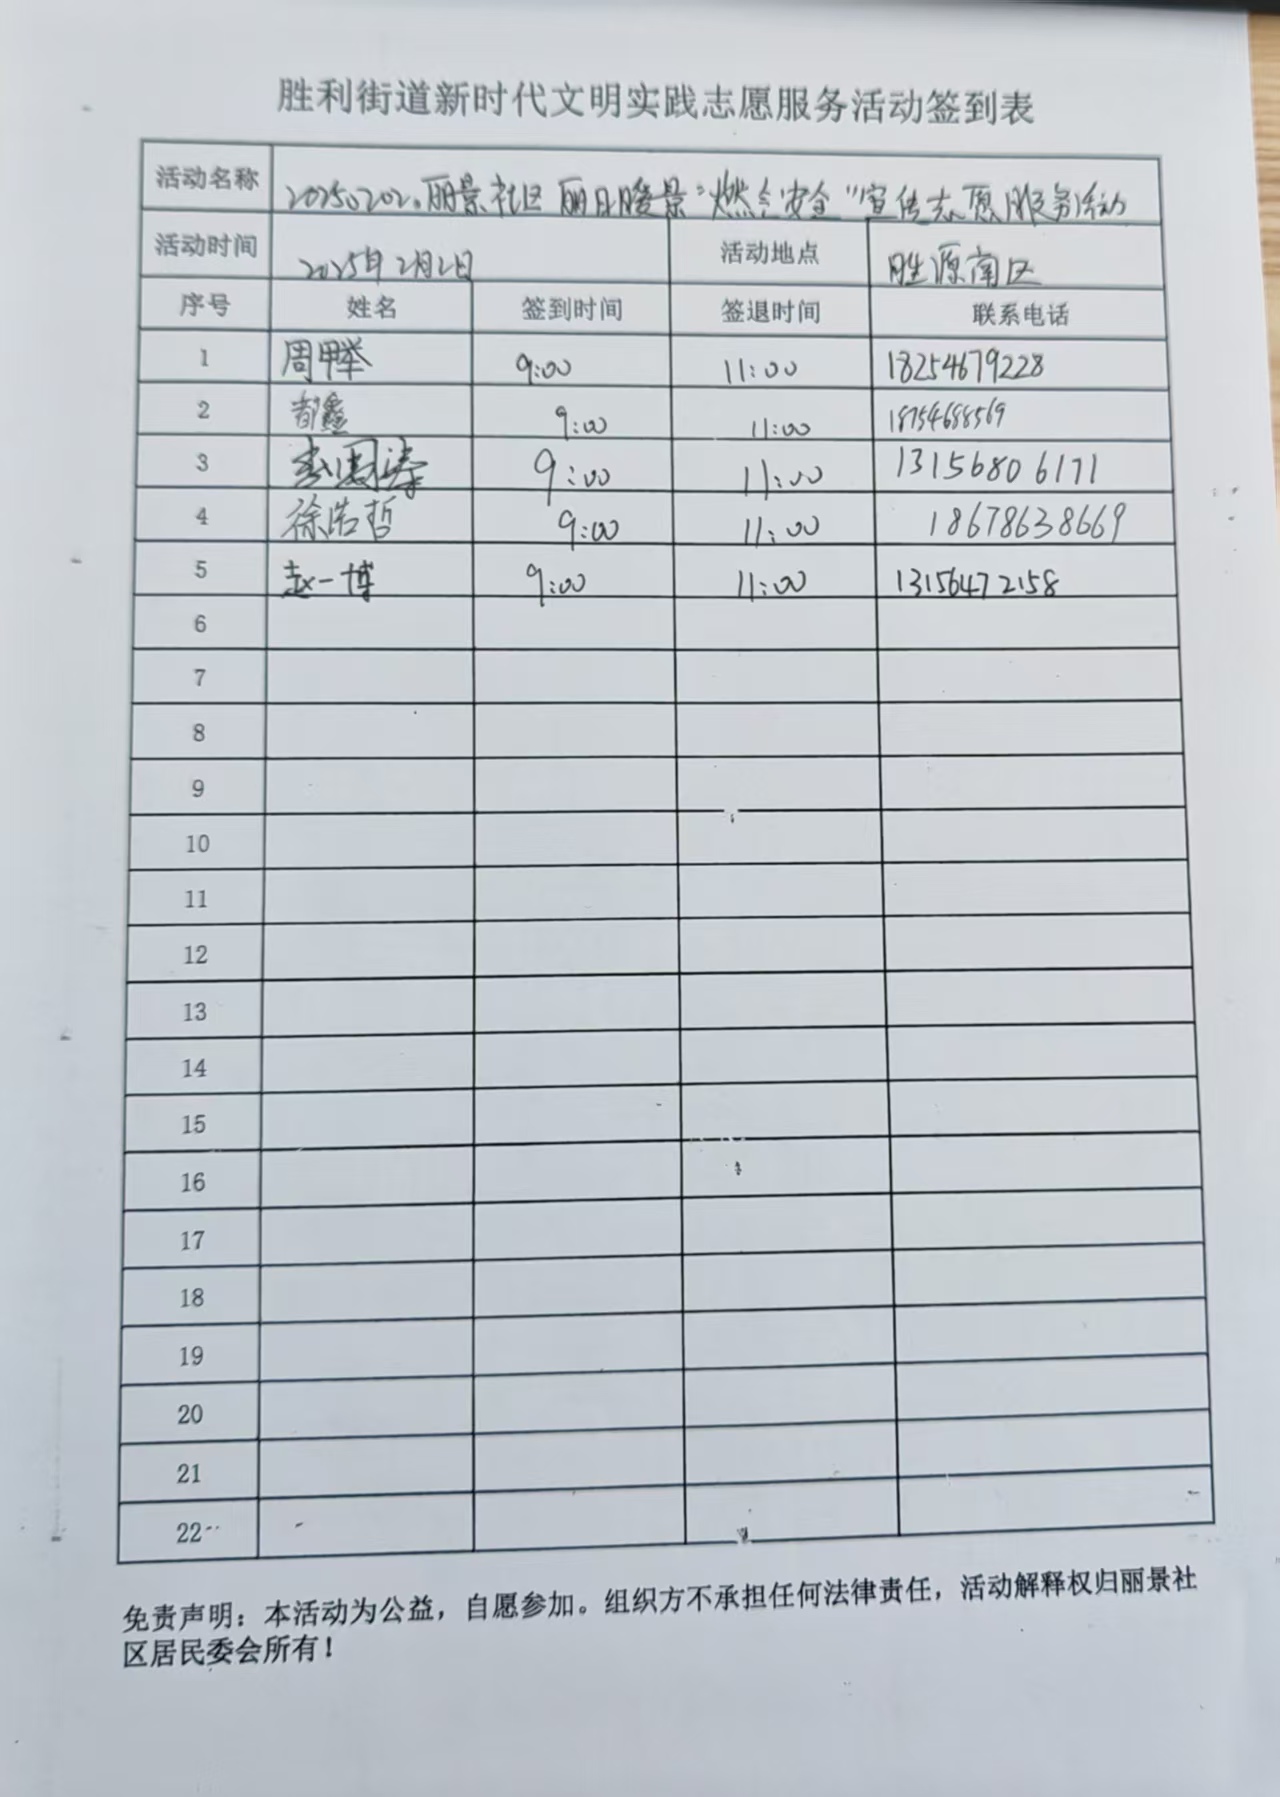 胜利街道新时代文明实践志愿服务活动签到表
活动名称 20250202.丽景社区 丽日暖景"燃气安全"宣传志愿服务活动
活动时间 2025年2月2日 活动地点 胜源南区
序号 姓名 签到时间 签退时间 联系电话
1 周 9:00 11:00 18254679228
2 郜鑫 9:00 11:00 18754688569
3 9:00 11:00 13156806171
4 徐浩哲 9:00 11:00 18678638669
5 赵一博 9:00 11:00 13156472158
6
7
8
9
10
11
12
13
14
15
16
17
18
19
20
21
22
免责声明：本活动为公益，自愿参加。组织方不承担任何法律责任，活动解释权归丽景社
区居民委会所有！